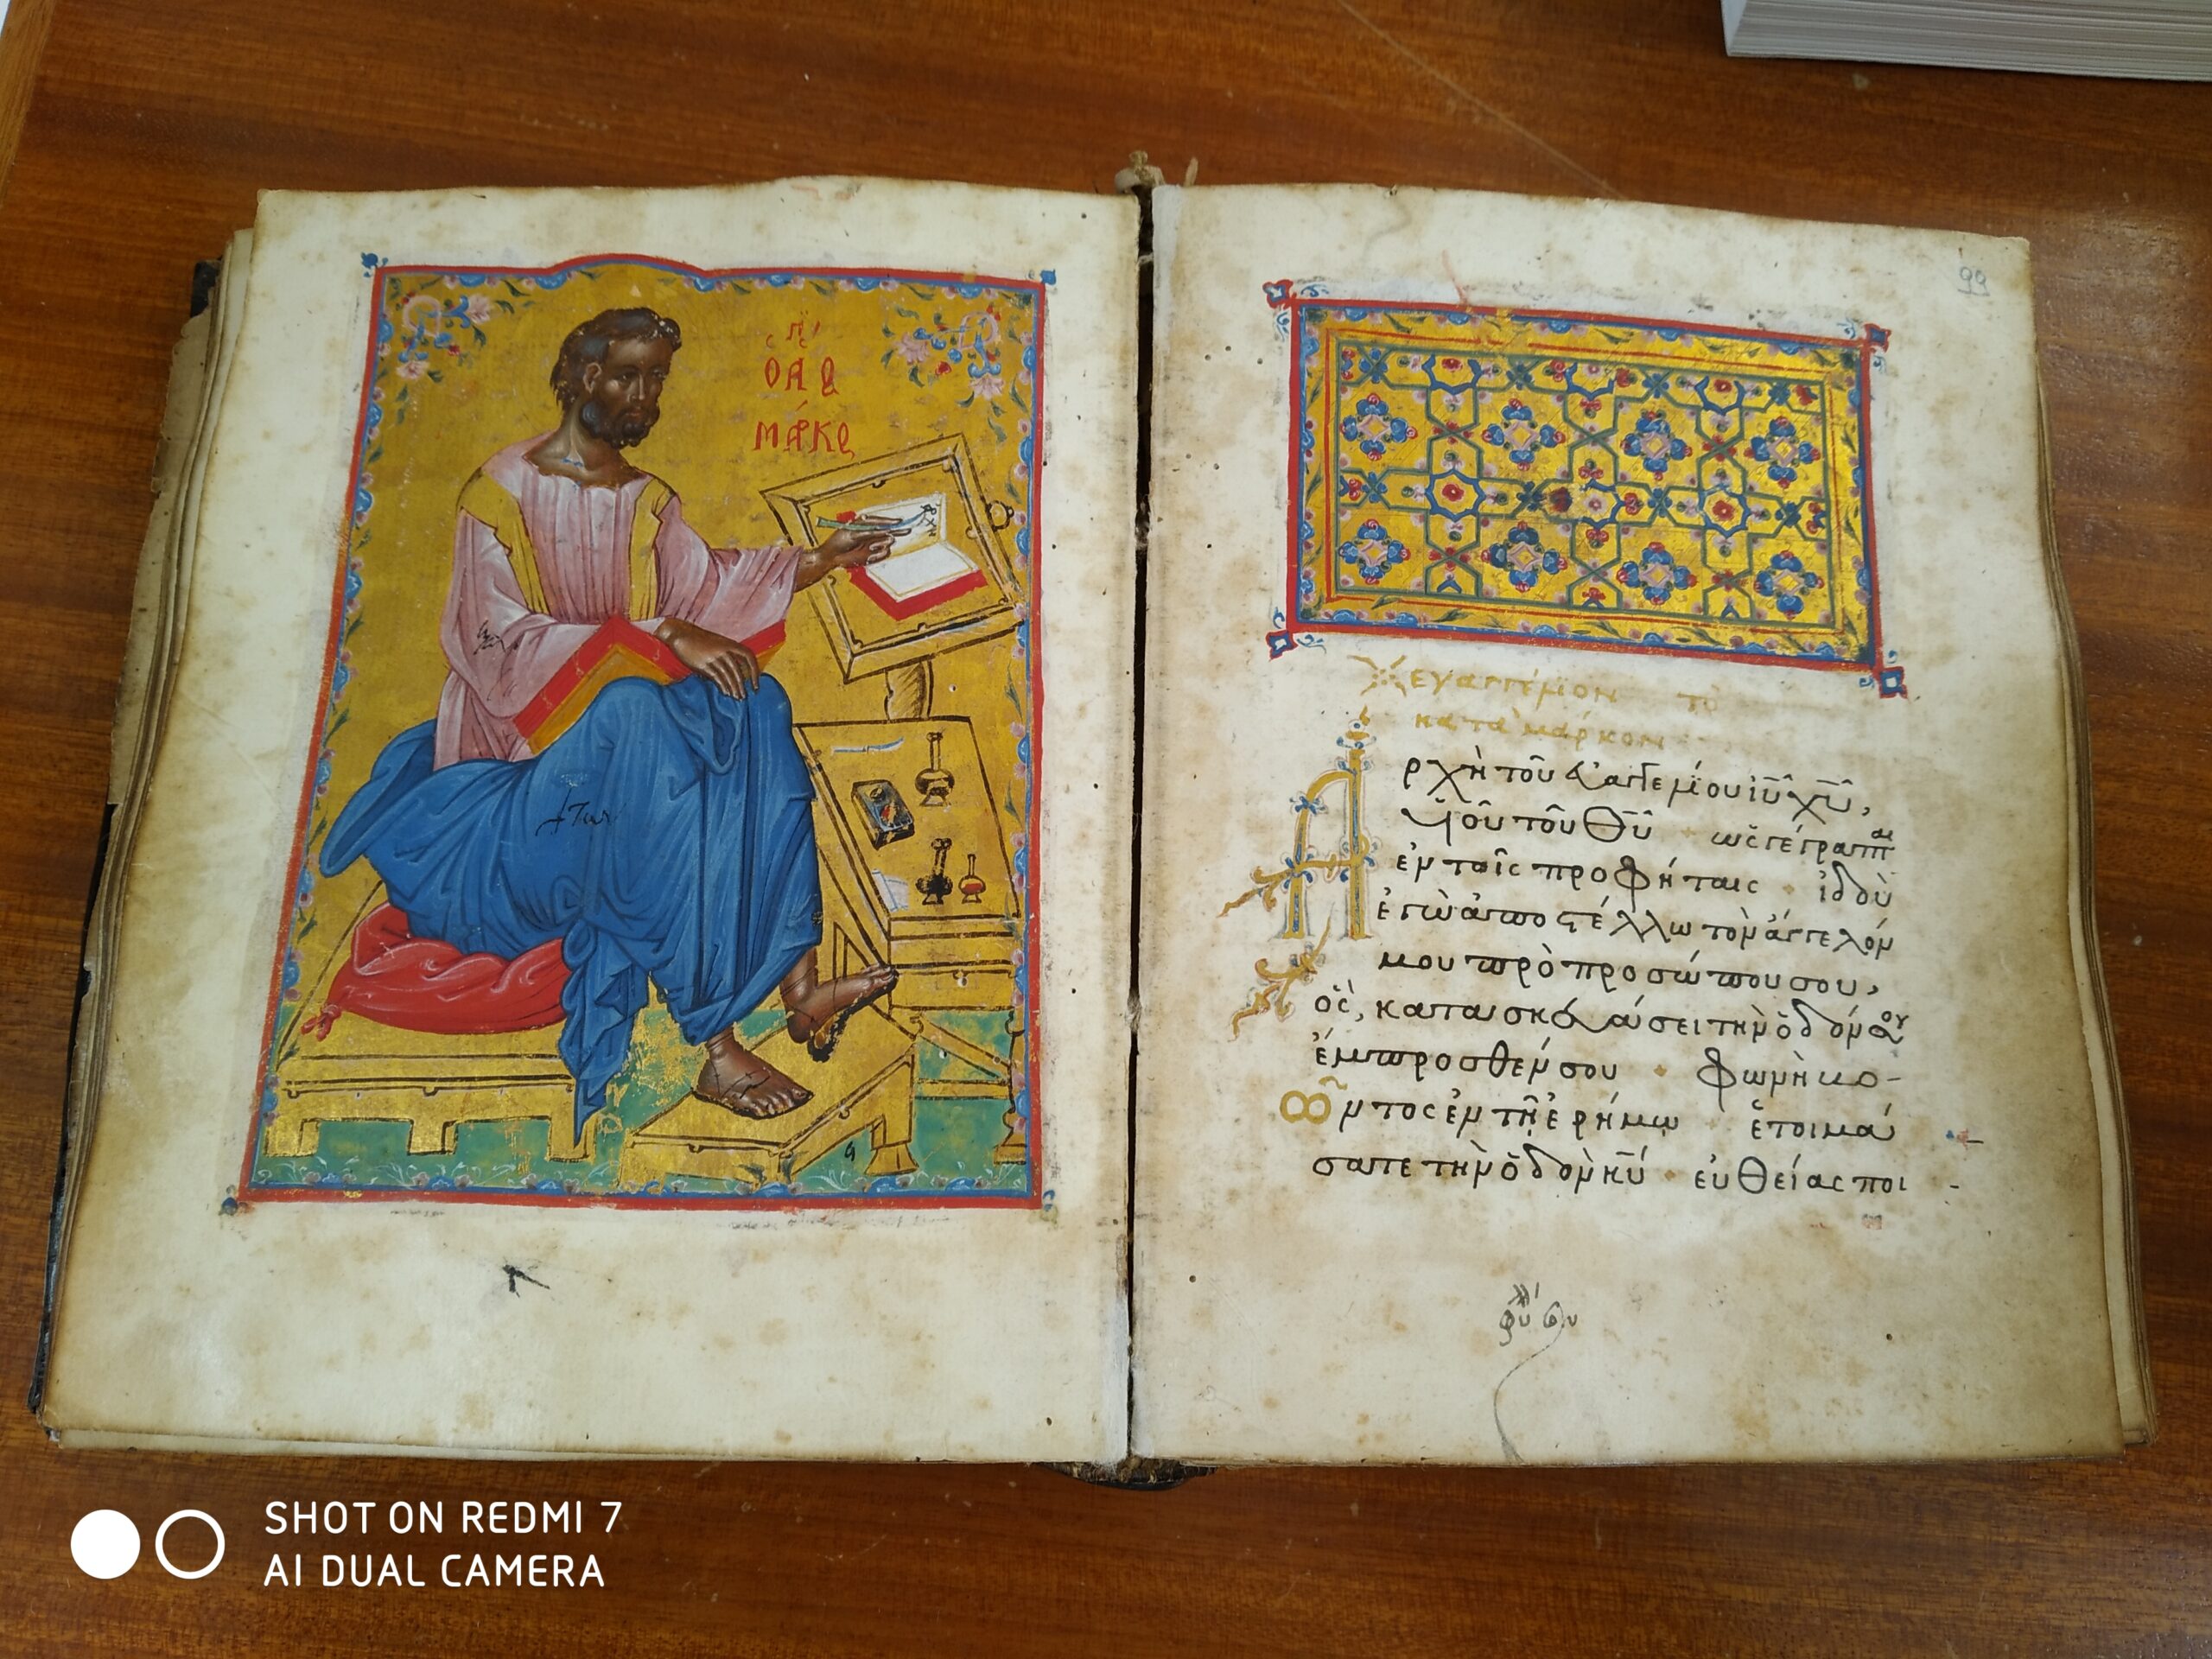 ὁ ἅγ
μάρκος
99
εὐαγγέλιον τὸ
κατὰ μάρκον
Ἀρχὴ τοῦ εὐαγγελίου ἰῦ χῦ,
υἱοῦ τοῦ θῦ· ὡς γέγραπται
ἐν τοῖς προφήταις· ἰδοὺ
ἐγὼ ἀποστέλλω τὸν ἄγγελόν
μου πρὸ προσώπου σου,
ὃς, κατασκευάσει τὴν ὁδόν σου
ἔμπροσθέν σου· φωνὴ βο-
ῶντος ἐν τῇ ἐρήμω· ἑτοιμά
σατε τὴν ὁδὸν κῦ· εὐθείας ποι
SHOT ON REDMI 7
AI DUAL CAMERA